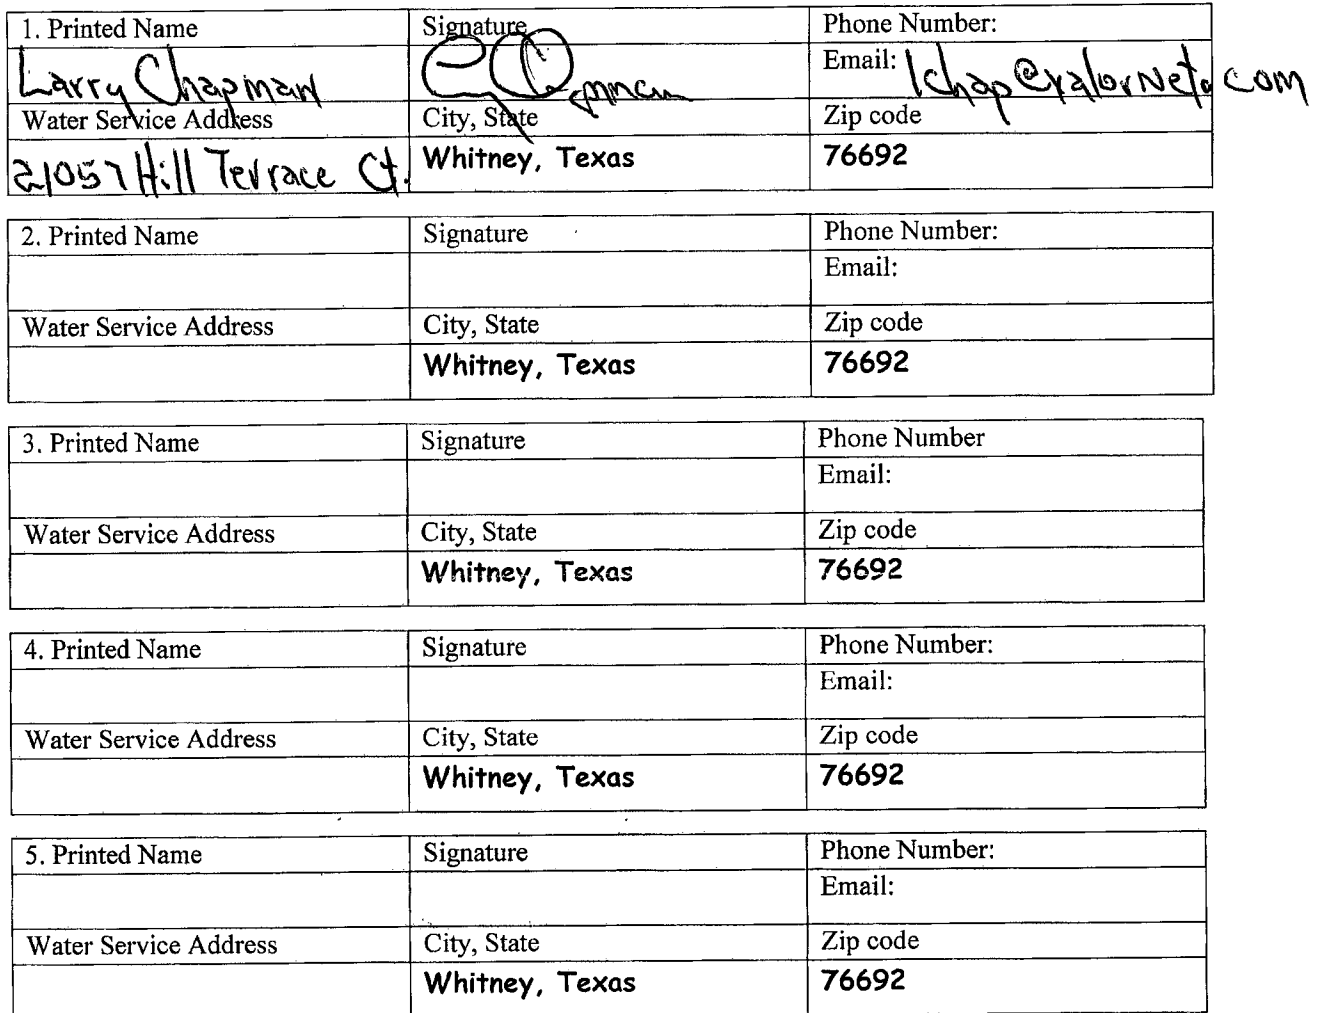 1. Printed Name Signature Phone Number:
Larry Chapman Email: lchap@valornet.com
Water Service Address City, State Zip code
21057 Hill Terrace Ct. Whitney, Texas 76692
2. Printed Name Signature Phone Number:
Email:
Water Service Address City, State Zip code
Whitney, Texas 76692
3. Printed Name Signature Phone Number
Email:
Water Service Address City, State Zip code
Whitney, Texas 76692
4. Printed Name Signature Phone Number:
Email:
Water Service Address City, State Zip code
Whitney, Texas 76692
5. Printed Name Signature Phone Number:
Email:
Water Service Address City, State Zip code
Whitney, Texas 76692